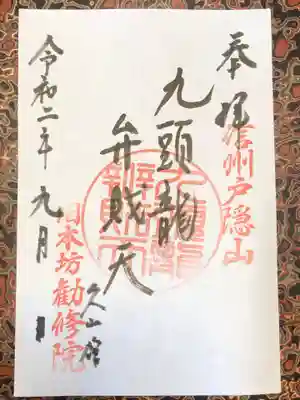 奉拝
信州戸隠山
九頭龍
弁財天
久山館
旧本坊勧修院
令和二年九月